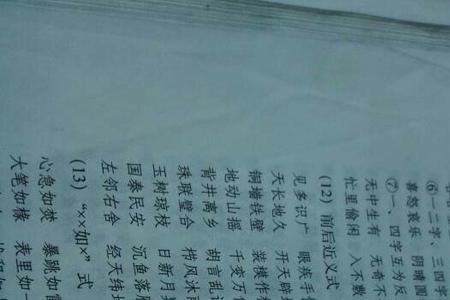 ⑥一二字、三四字
喜怒哀乐 阴晴圆
⑦一、四字互为反
无中生有 无奇不
忙里偷闲 入不敷
(12) 前后近义式
见多识广 眼疾手
天长地久 开天辟
铜墙铁壁 装模作
地动山摇 千变万
背井离乡 胡言乱
珠联璧合 栉风沐
玉树琼枝 日新月
国泰民安 沉鱼落
左邻右舍 经天纬
(13) “×如×”式
心急如焚 暴跳如
大笔如椽 表里如一